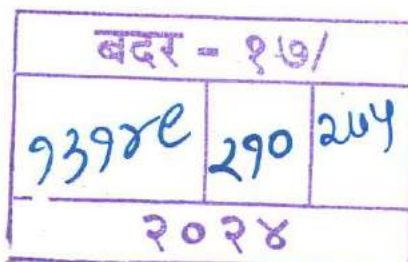 बदर - १७/
१३१४९ २१० २७५
२०२४